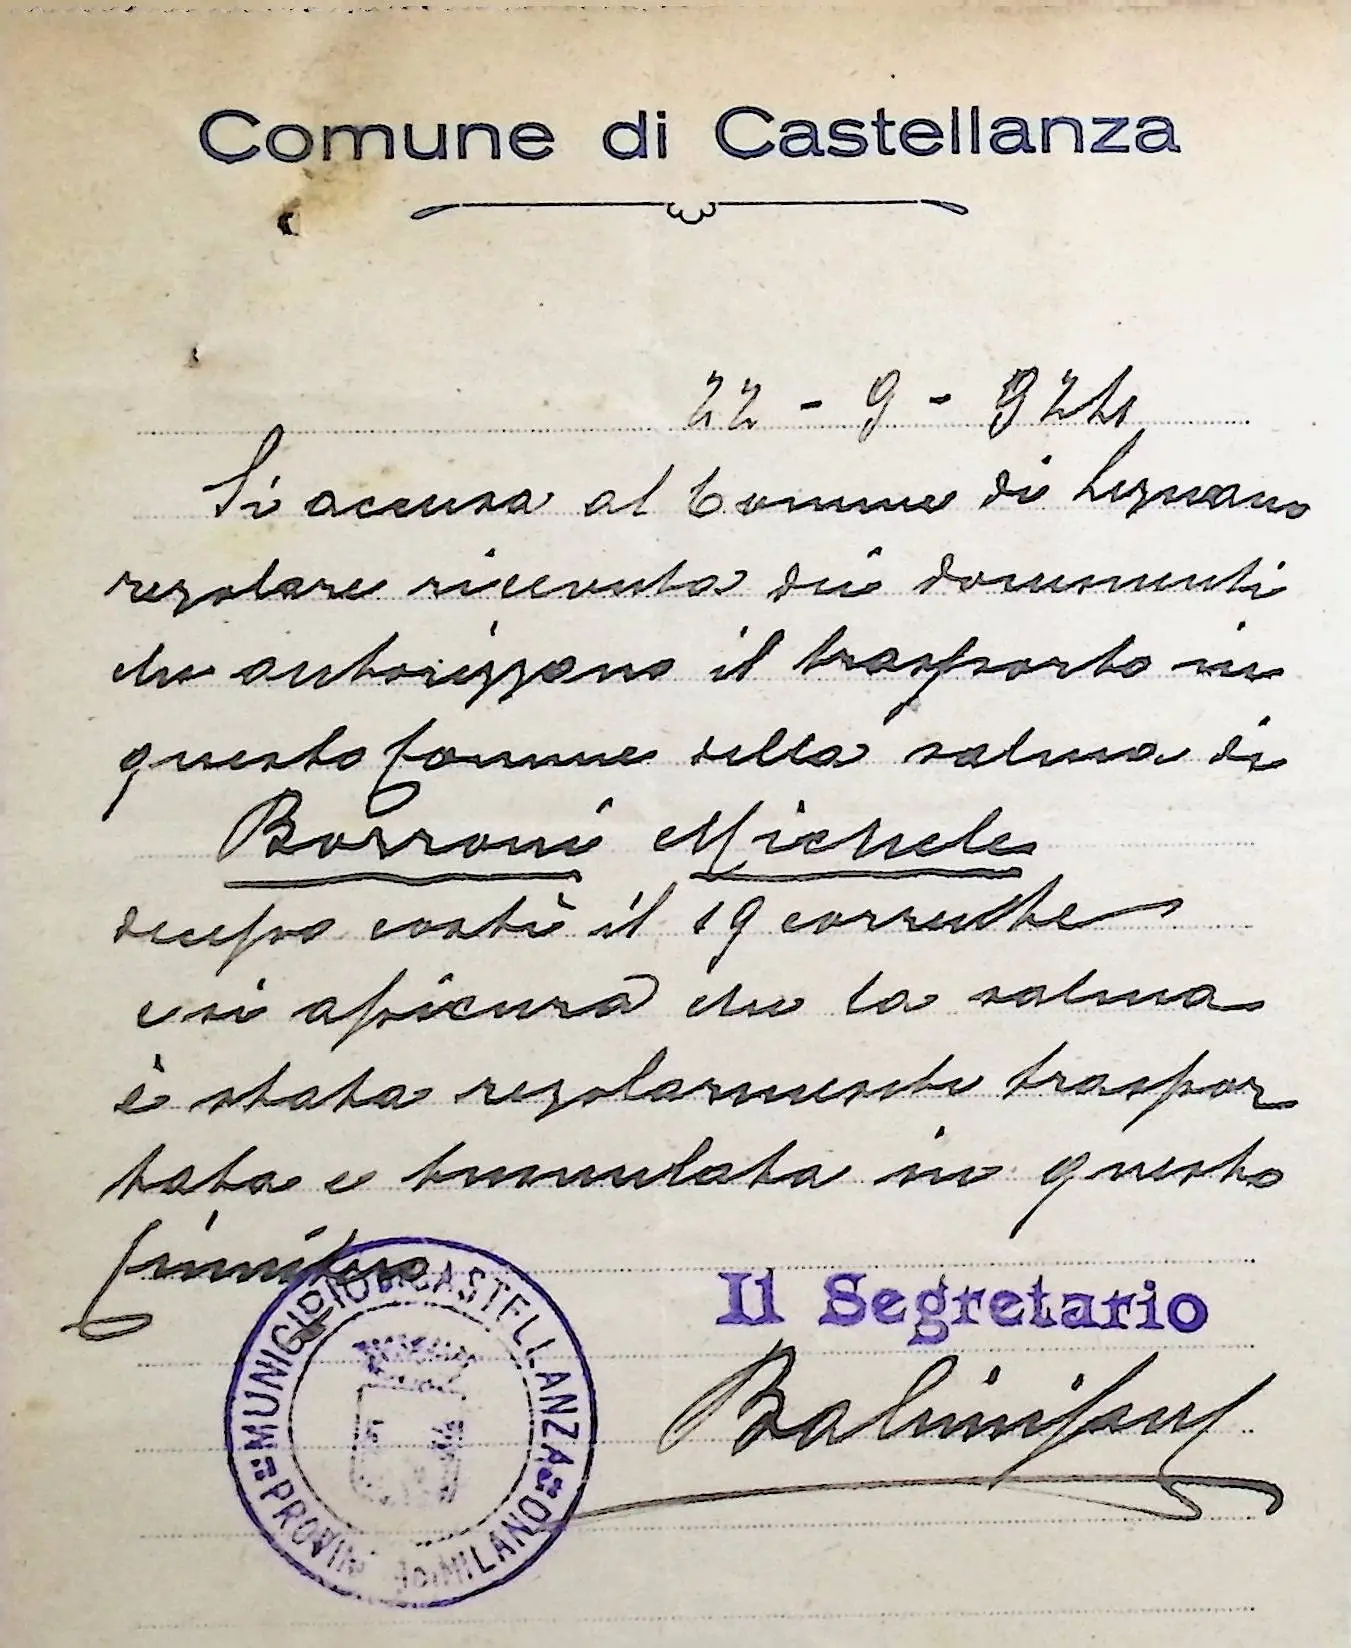 Comune di Castellanza
22 - 9 - 924
Si accusa al Comune di Legnano
regolare ricevuta dei documenti
che autorizzano il trasporto in
questo Comune della salma di
Borroni Michele
decesso costì il 19 corrente
e si assicura che la salma
è stata regolarmente traspor
tata e tumulata in questo
Cimitero
MUNICIPIO DI CASTELLANZA
PROVIN DI MILANO
Il Segretario